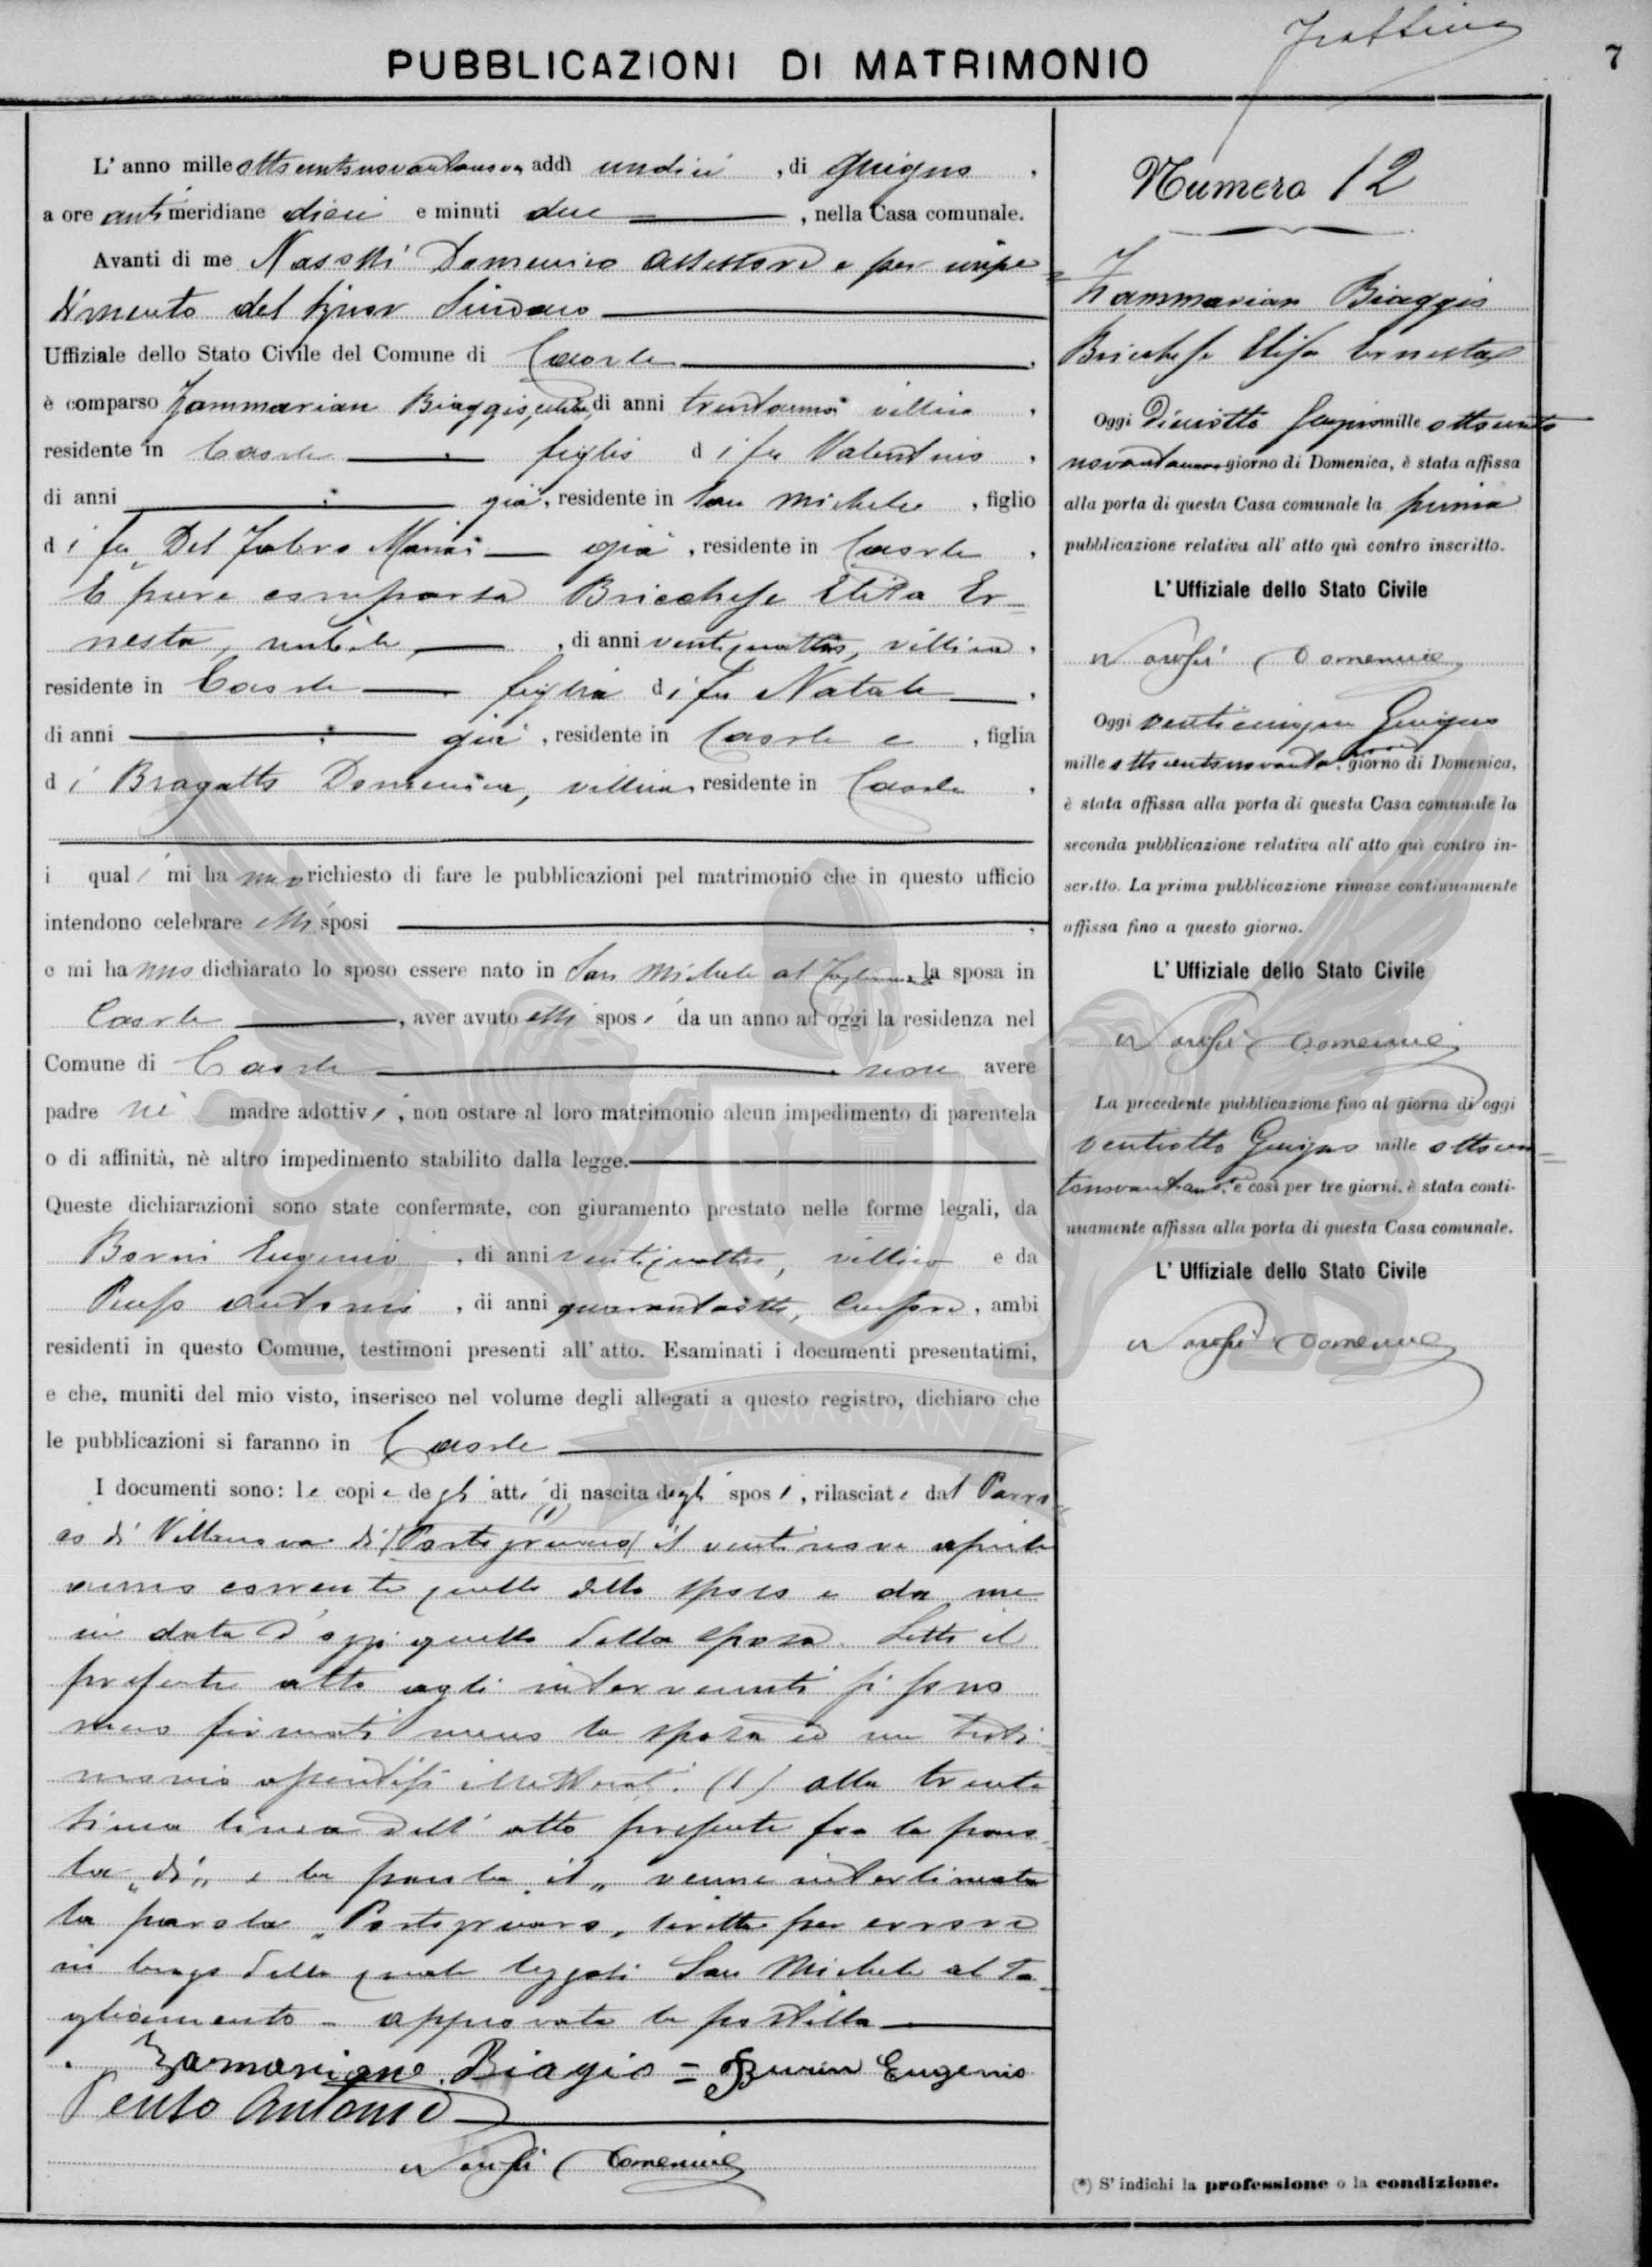 PUBBLICAZIONI DI MATRIMONIO
7
L' anno mille ottocentonovantanove, addì undici , di Giugno ,
a ore antimeridiane dieci e minuti due , nella Casa comunale.
Avanti di me Domenico Assessore e per impe=
dimento del Signor Sindaco
Uffiziale dello Stato Civile del Comune di Caorle .
è comparso Zammarian Biaggio, celibe, di anni villico ,
residente in Caorle figlio di fu Valentino ,
di anni già , residente in San Michele , figlio
di fu Del Fabro Maria già , residente in Caorle ,
E pure comparsa Bricchese Elisa Er=
nesta, nubile , di anni ventiquattro, villica ,
residente in Caorle figlia di fu Natale ,
di anni già , residente in Caorle e , figlia
di Bragatto Domenica, villica residente in Caorle ,
i quali mi hanno richiesto di fare le pubblicazioni pel matrimonio che in questo ufficio
intendono celebrare essi sposi ;
e mi hanno dichiarato lo sposo essere nato in San Michele al Tagliamento la sposa in
Caorle , aver avuto essi sposi da un anno ad oggi la residenza nel
Comune di Caorle non avere
padre nè madre adottivi, non ostare al loro matrimonio alcun impedimento di parentela
o di affinità, nè altro impedimento stabilito dalla legge.
Queste dichiarazioni sono state confermate, con giuramento prestato nelle forme legali, da
Eugenio , di anni ventiquattro, villico e da
Antonio , di anni quarantotto, , ambi
residenti in questo Comune, testimoni presenti all' atto. Esaminati i documenti presentatimi,
e che, muniti del mio visto, inserisco nel volume degli allegati a questo registro, dichiaro che
le pubblicazioni si faranno in Caorle
I documenti sono: le copie degli atti di nascita degli sposi, rilasciate dal Parro=
co di Villanova di (1) (Portogruaro) il ventinove aprile
anno corrente quello dello sposo e da me
in data d'oggi quello della sposa. Letto il
presente atto agli intervenuti si sono
meco firmati meno la sposa ed un testi=
monio illetterati. (1) alla trente
sima linea dell' atto presente fra la paro=
la „di„ e la parola „il„ venne interlineata
la parola „Portogruaro„ scritta per errore
in luogo della quale leggasi San Michele al Ta=
gliamento - approvata la postilla
Zamarian Biagio = Eugenio
Antonio
Domenico
Numero 12
Zammarian Biaggio
Bricchese Elisa Ernesta
Oggi Dieciotto Giugno mille ottocento
novantanove giorno di Domenica, è stata affissa
alla porta di questa Casa comunale la prima
pubblicazione relativa all' atto quì contro inscritto.
L' Uffiziale dello Stato Civile
Domenico
Oggi venticinque Giugno
mille ottocentonovantanove giorno di Domenica,
è stata affissa alla porta di questa Casa comunale la
seconda pubblicazione relativa all' atto quì contro in-
scritto. La prima pubblicazione rimase continuamente
affissa fino a questo giorno.
L' Uffiziale dello Stato Civile
Domenico
La precedente pubblicazione fino al giorno di oggi
ventiotto Giugno mille ottocen=
tonovantanove, e così per tre giorni, è stata conti-
nuamente affissa alla porta di questa Casa comunale.
L' Uffiziale dello Stato Civile
Domenico
(*) S' indichi la professione o la condizione.